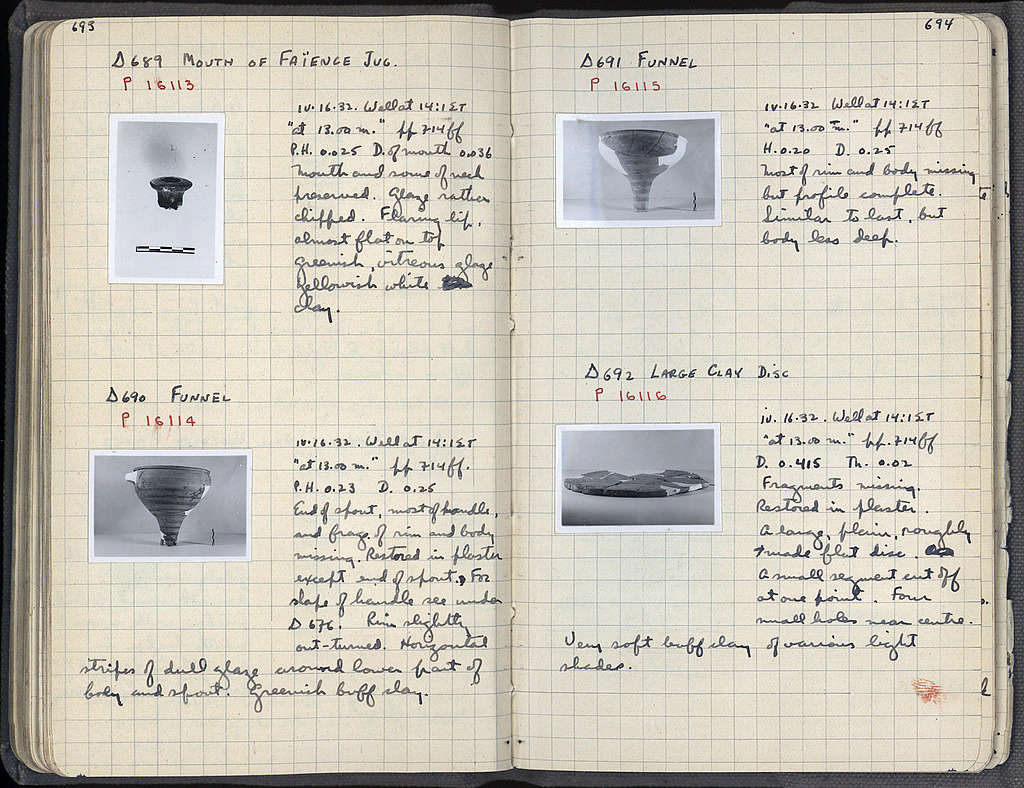 693
Δ689 MOUTH OF FAÏENCE JUG.
P 16113
IV.16.32. Well at 14:1ΣΤ
"at 13.00 m." pp 714ff
P.H. 0.025 D. of mouth 0.036
Mouth and some of neck
preserved. Glaze rather
chipped. Flaring lip,
almost flat on top
Greenish, vitreous glaze
Yellowish white
clay.
Δ690 FUNNEL
P 16114
IV.16.32. Well at 14:1ΣΤ
"at 13.00 m." pp 714ff.
P.H. 0.23 D. 0.25
End of spout, most of handle,
and frags. of rim and body
missing. Restored in plaster
except end of spout. For
shape of handle see under
Δ 676. Rim slightly
out-turned. Horizontal
stripes of dull glaze around lower part of
body and spout. Greenish buff clay.
694
Δ691 FUNNEL
P 16115
IV.16.32 Well at 14:1ΣΤ
"at 13.00 m." pp 714ff
H. 0.20 D. 0.25
Most of rim and body missing
but profile complete.
Similar to last, but
body less deep.
Δ692 LARGE CLAY DISC
P 16116
IV.16.32. Well at 14:1ΣΤ
"at 13.00 m." pp. 714ff
D. 0.415 Th. 0.02
Fragments missing.
Restored in plaster.
A large, plain, roughly
made flat disc.
A small segment cut off
at one point. Four
small holes near centre.
Very soft buff clay of various light
shades.